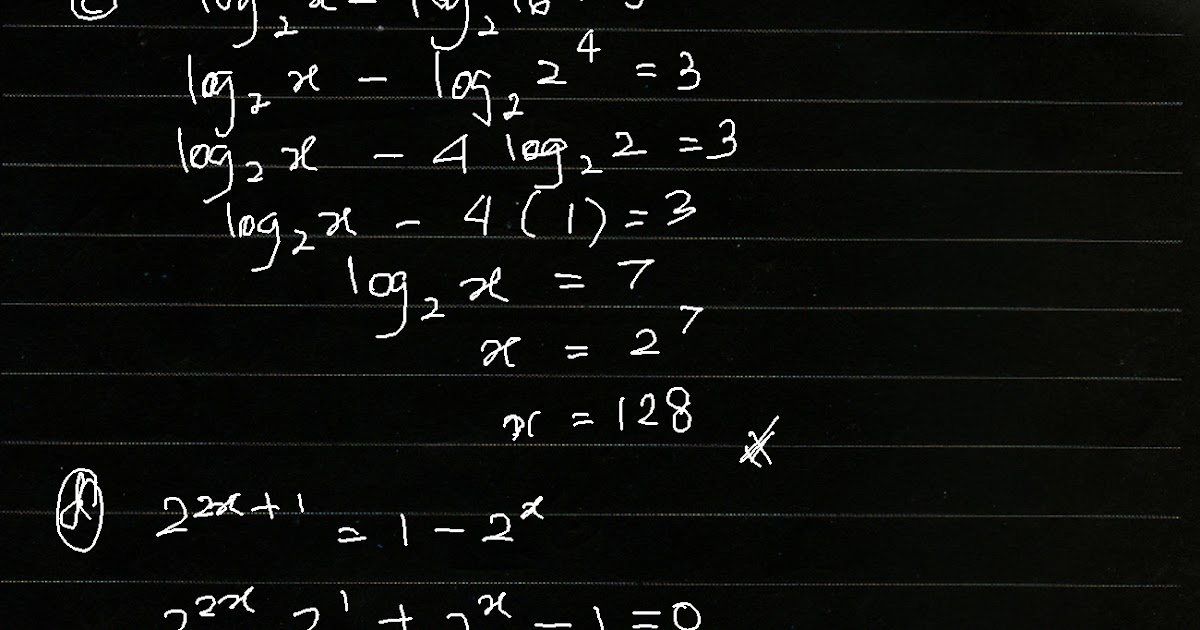 ⓒ log₂ x - log₂ 16 = 3
log₂ x - log₂ 2⁴ = 3
log₂ x - 4 log₂ 2 = 3
log₂ x - 4 (1) = 3
log₂ x = 7
x = 2⁷
x = 128
ⓓ 2²ˣ⁺¹ = 1 - 2ˣ
2²ˣ 2¹ + 2ˣ - 1 = 0